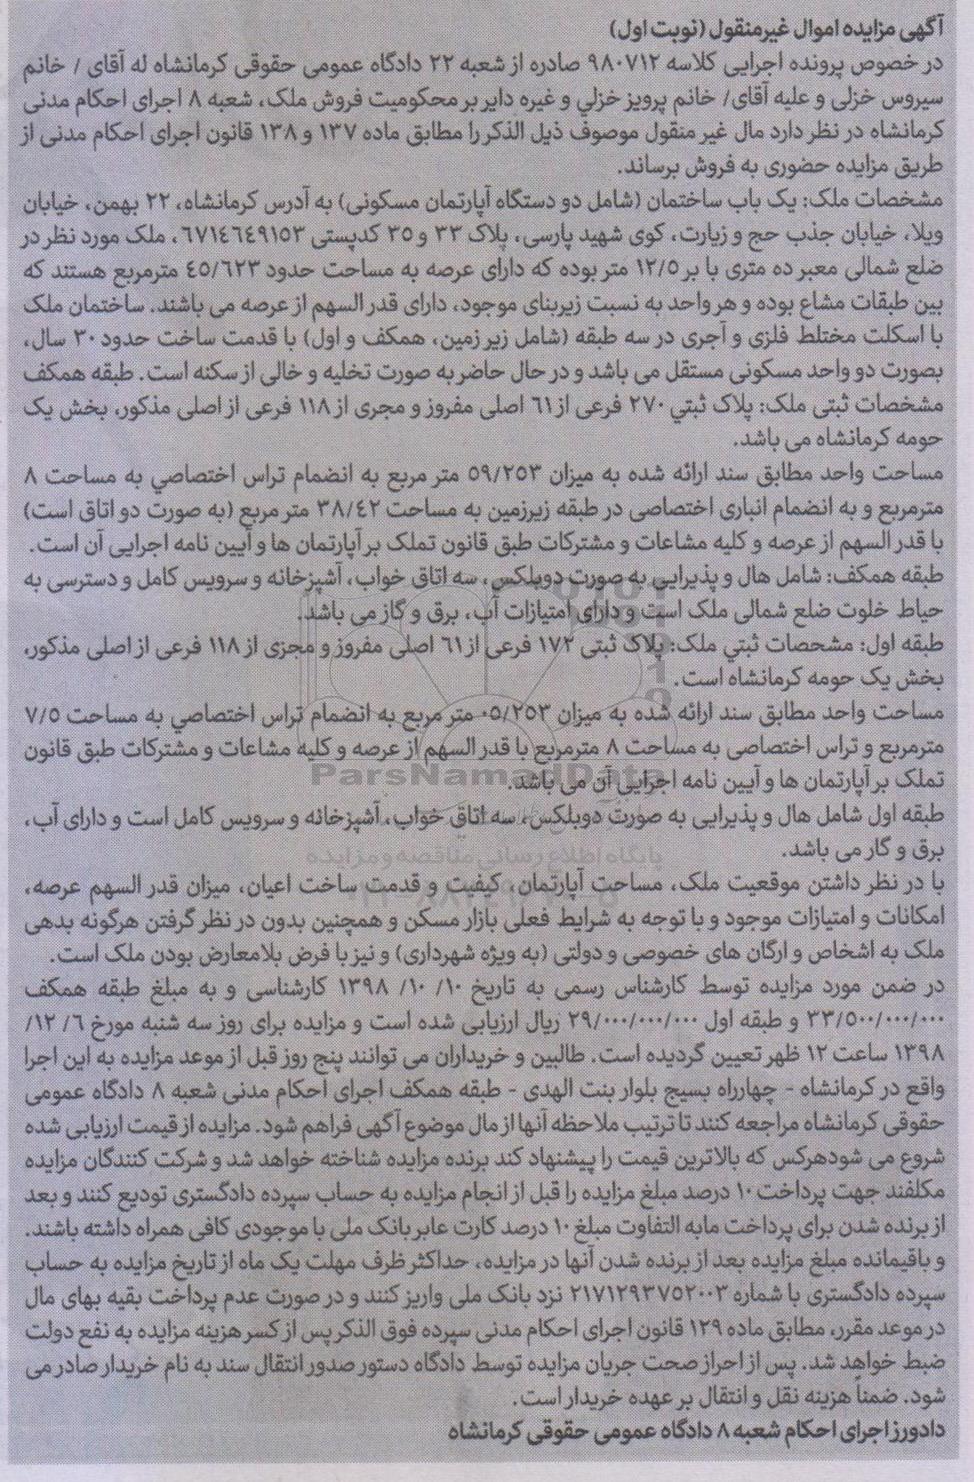 آگهی مزایده اموال غیرمنقول (نوبت اول)
در خصوص پرونده اجرایی کلاسه ۹۸۰۷۱۲ صادره از شعبه ۲۲ دادگاه عمومی حقوقی کرمانشاه له آقای / خانم
سیروس خزلی و علیه آقای/ خانم پرویز خزلي و غیره دایر بر محکومیت فروش ملک، شعبه ۸ اجرای احکام مدنی
کرمانشاه در نظر دارد مال غیر منقول موصوف ذیل الذکر را مطابق ماده ۱۳۷ و ۱۳۸ قانون اجرای احکام مدنی از
طریق مزایده حضوری به فروش برساند.
مشخصات ملک: یک باب ساختمان (شامل دو دستگاه آپارتمان مسکونی) به آدرس کرمانشاه، ۲۲ بهمن، خیابان
ویلا، خیابان جذب حج و زیارت، کوی شهید پارسی، پلاک ۳۳ و ۳۵ کدپستی ۶۷۱۴۶۴۹۱۵۳، ملک مورد نظر در
ضلع شمالی معبر ده متری با بر ۱۲/۵ متر بوده که دارای عرصه به مساحت حدود ۴۵/۶۲۳ مترمربع هستند که
بین طبقات مشاع بوده و هر واحد به نسبت زیربنای موجود، دارای قدر السهم از عرصه می باشند. ساختمان ملک
با اسکلت مختلط فلزی و آجری در سه طبقه (شامل زیر زمین، همکف و اول) با قدمت ساخت حدود ۳۰ سال،
بصورت دو واحد مسکونی مستقل می باشد و در حال حاضر به صورت تخلیه و خالی از سکنه است. طبقه همکف
مشخصات ثبتی ملک: پلاک ثبتي ۲۷۰ فرعی از ۶۱ اصلی مفروز و مجری از ۱۱۸ فرعی از اصلی مذکور، بخش یک
حومه کرمانشاه می باشد.
مساحت واحد مطابق سند ارائه شده به میزان ۵۹/۲۵۳ متر مربع به انضمام تراس اختصاصي به مساحت ۸
مترمربع و به انضمام انباری اختصاصی در طبقه زیرزمین به مساحت ۳۸/۴۲ متر مربع (به صورت دو اتاق است)
با قدر السهم از عرصه و کلیه مشاعات و مشترکات طبق قانون تملک بر آپارتمان ها و آیین نامه اجرایی آن است.
طبقه همکف: شامل هال و پذیرایی به صورت دوبلکس، سه اتاق خواب، آشپزخانه و سرویس کامل و دسترسی به
حیاط خلوت ضلع شمالی ملک است و دارای امتیازات آب، برق و گاز می باشد.
طبقه اول: مشخصات ثبتي ملک: پلاک ثبتی ۱۷۲ فرعی از ۶۱ اصلی مفروز و مجزی از ۱۱۸ فرعی از اصلی مذکور،
بخش یک حومه کرمانشاه است.
مساحت واحد مطابق سند ارائه شده به میزان ۰۵/۲۵۳ متر مربع به انضمام تراس اختصاصي به مساحت ۷/۵
مترمربع و تراس اختصاصی به مساحت ۸ مترمربع با قدر السهم از عرصه و کلیه مشاعات و مشترکات طبق قانون
تملک بر آپارتمان ها و آیین نامه اجرایی آن می باشد.
طبقه اول شامل هال و پذیرایی به صورت دوبلکس، سه اتاق خواب، آشپزخانه و سرویس کامل است و دارای آب،
برق و گاز می باشد.
با در نظر داشتن موقعیت ملک، مساحت آپارتمان، کیفیت و قدمت ساخت اعیان، میزان قدر السهم عرصه،
امکانات و امتیازات موجود و با توجه به شرایط فعلی بازار مسکن و همچنین بدون در نظر گرفتن هرگونه بدهی
ملک به اشخاص و ارگان های خصوصی و دولتی (به ویژه شهرداری) و نیز با فرض بلامعارض بودن ملک است.
در ضمن مورد مزایده توسط کارشناس رسمی به تاریخ ۱۰/ ۱۰/ ۱۳۹۸ کارشناسی و به مبلغ طبقه همکف
۳۳/۵۰۰/۰۰۰/۰۰۰ و طبقه اول ۲۹/۰۰۰/۰۰۰/۰۰۰ ریال ارزیابی شده است و مزایده برای روز سه شنبه مورخ ۶/ ۱۲/
۱۳۹۸ ساعت ۱۲ ظهر تعیین گردیده است. طالبین و خریداران می توانند پنج روز قبل از موعد مزایده به این اجرا
واقع در کرمانشاه - چهارراه بسیج بلوار بنت الهدی - طبقه همکف اجرای احکام مدنی شعبه ۸ دادگاه عمومی
حقوقی کرمانشاه مراجعه کنند تا ترتیب ملاحظه آنها از مال موضوع آگهی فراهم شود. مزایده از قیمت ارزیابی شده
شروع می شودهرکس که بالاترین قیمت را پیشنهاد کند برنده مزایده شناخته خواهد شد و شرکت کنندگان مزایده
مکلفند جهت پرداخت ۱۰ درصد مبلغ مزایده را قبل از انجام مزایده به حساب سپرده دادگستری تودیع کنند و بعد
از برنده شدن برای پرداخت مابه التفاوت مبلغ ۱۰ درصد کارت عابر بانک ملی با موجودی کافی همراه داشته باشند.
و باقیمانده مبلغ مزایده بعد از برنده شدن آنها در مزایده، حداکثر ظرف مهلت یک ماه از تاریخ مزایده به حساب
سپرده دادگستری با شماره ۲۱۷۱۲۹۳۷۵۲۰۰۳ نزد بانک ملی واریز کنند و در صورت عدم پرداخت بقیه بهای مال
در موعد مقرر، مطابق ماده ۱۲۹ قانون اجرای احکام مدنی سپرده فوق الذکر پس از کسر هزینه مزایده به نفع دولت
ضبط خواهد شد. پس از احراز صحت جریان مزایده توسط دادگاه دستور صدور انتقال سند به نام خریدار صادر می
شود. ضمناً هزینه نقل و انتقال بر عهده خریدار است.
دادورز اجرای احکام شعبه ۸ دادگاه عمومی حقوقی کرمانشاه
ParsNamadData
پایگاه اطلاع رسانی مناقصه و مزایده